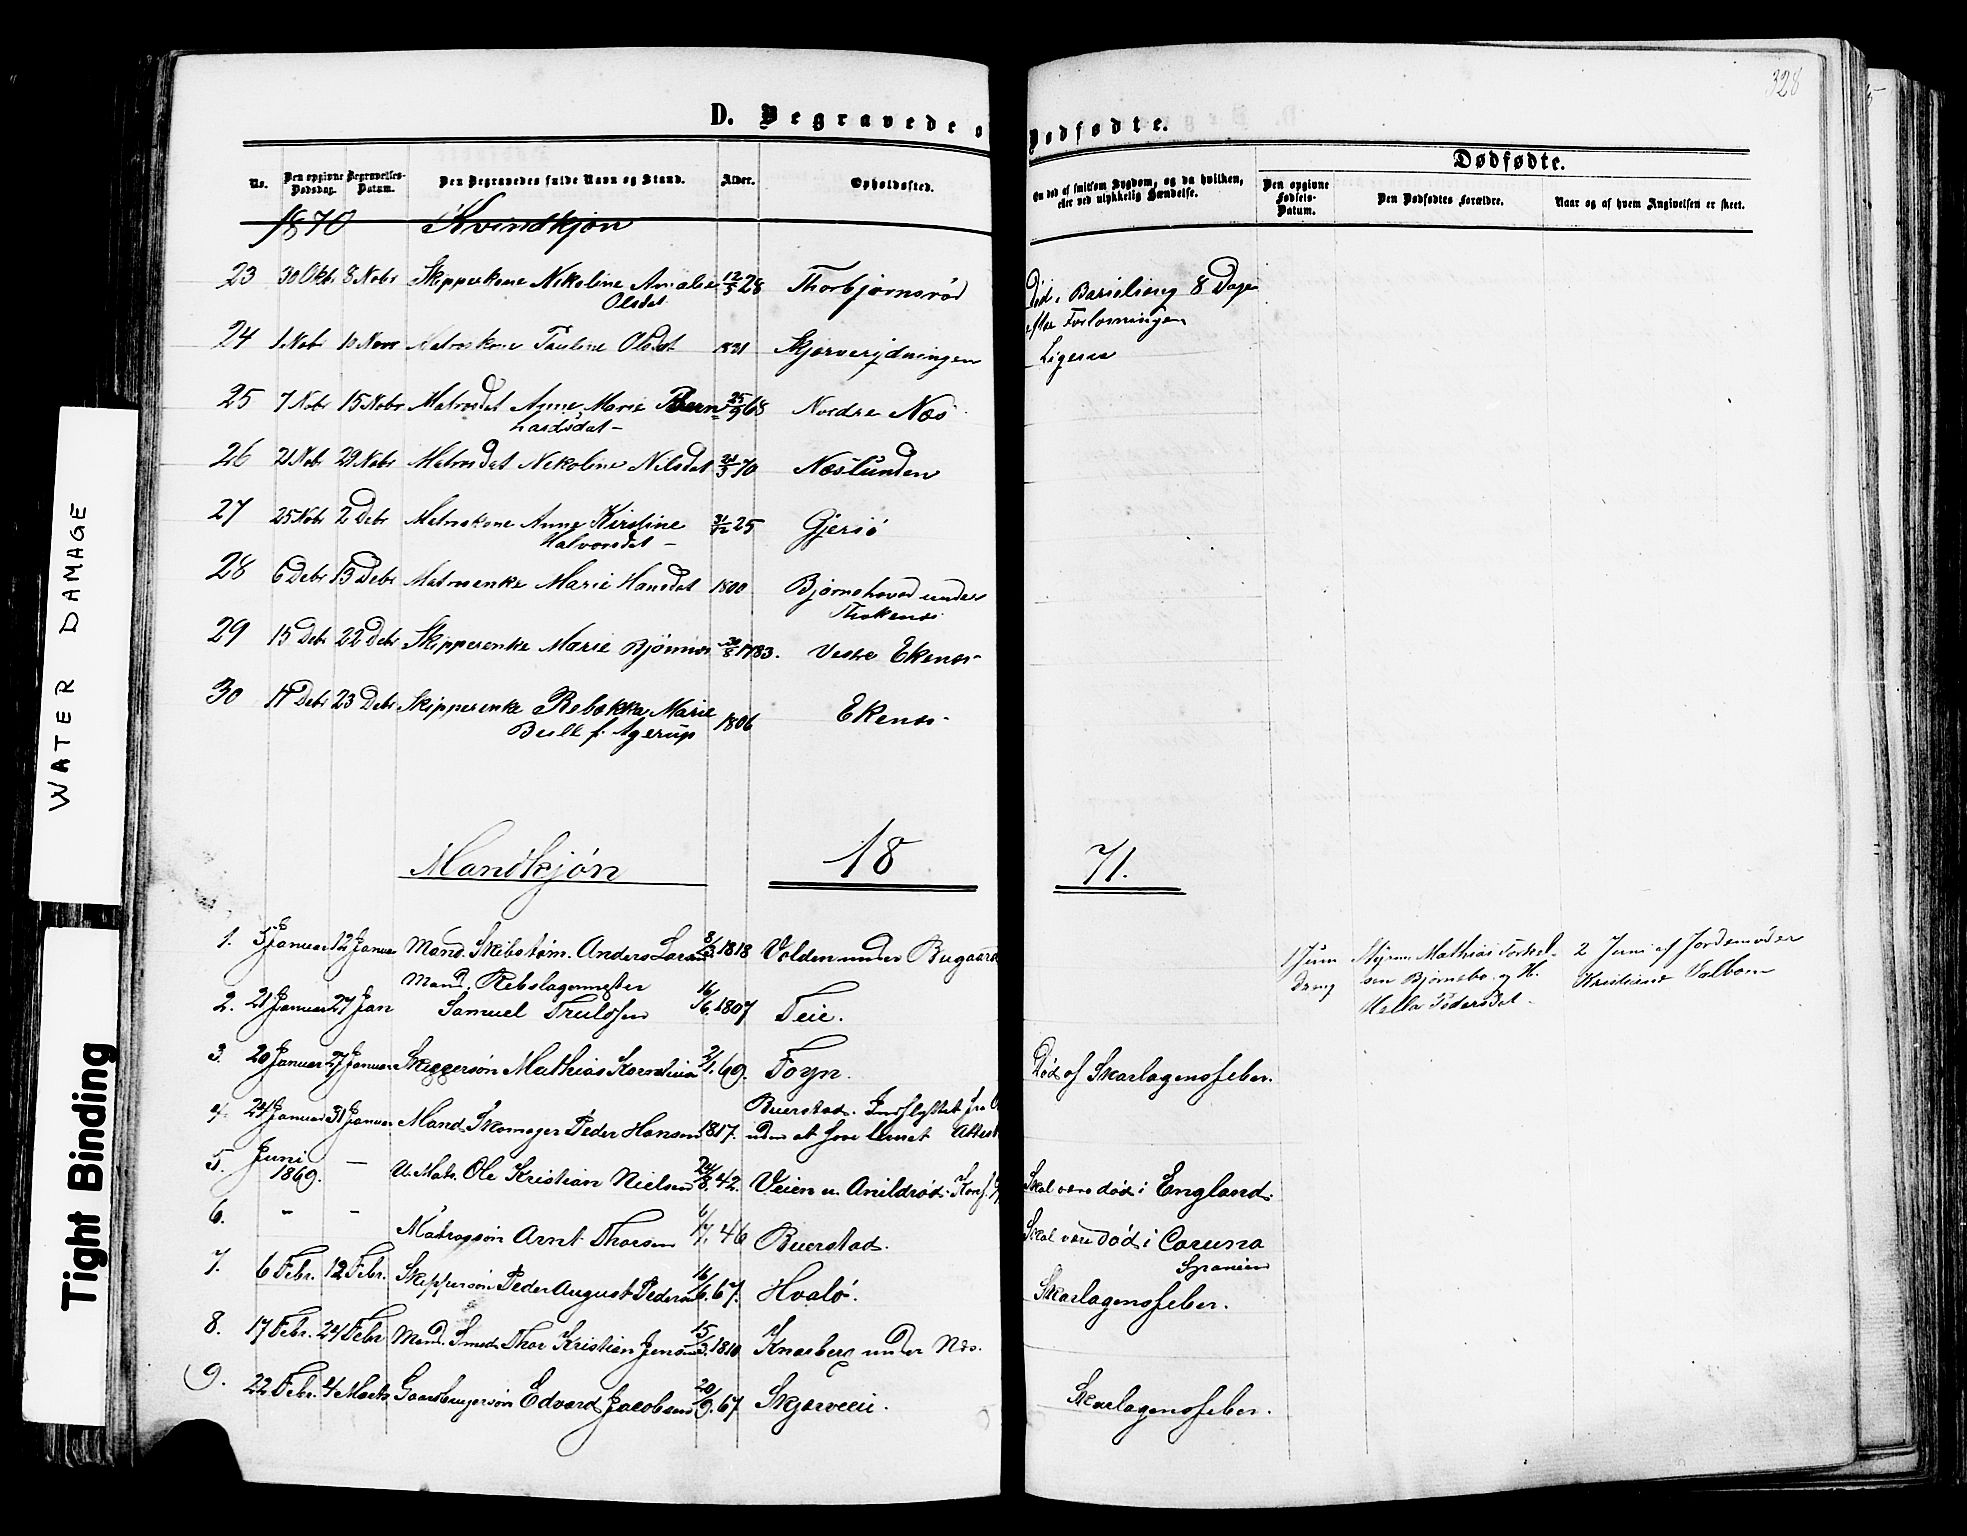 328
D. Begravede o Dødfødte.
No. Den opgivne Dødsdag. Begravelses-Datum. Den Begravedes fulde Navn og Stand. Alder. Opholdssted. Om død af smitsom Sygdom, og da hvilken, eller ved ulykkelig Hændelse.
Dødfødte.
Den opgivne Fødsels-Datum. Den Dødfødtes Forældre. Naar og af hvem Angivelsen er skeet.
1870 Kvindkjøn
23 30 Oktr 8 Nobr Skipperkone Nikoline Amalie 12/5 28 Thorbjørnsrød Død i Barselseng 8 Dage
Olsdat efter Forløsningen
24 1 Nobr 10 Nobr Matroskone Pauline Olsdat 1831 Skjærverydningen Ligesaa
25 7 Nobr 15 Nobr Matrosdat Anne Marie Bern 25/9 68 Nordre Næs
hardsdat –
26 21 Nobr 29 Nobr Matrosdat Nikoline Nilsdat 21/5 70 Næslunden
27 25 Nobr 2 Debr Matroskone Anne Kirstine 31/12 25 Gjersø
Halvorsdat –
28 6 Debr 13 Debr Matrosenke Marie Hansdat 1800 Bjørnehoved under
29 15 Debr 22 Debr Skipperenke Marie 30/8 1783. Vestre Ekenæs
30 17 Debr 23 Debr Skipperenke Rebekka Marie 1806 Ekenæs
Bull f. Agerup
Mandkjøn 18 71.
1. 5 Januar 12 Januar Mand. Skibstøm. Anders Larsen 8/3 1818 Volden under Bugaard
1 Juni Styrm. Mathias Torkel- 2 Juni af Jordemoder
dreng sen Bjørnebo og H. Kristiane Valbom
Mella Pedersdat
Mand. Rebslagermester
2. 21 Januar 27 Jan Samuel Trulssen 16/6. 1807 Teie.
3. 20 Januar 27 Januar Skippersøn Mathias Kornelius 2/1. 69. Foyn. Død af Skarlagensfeber.
4. 24 Januar 31 Januar Mand Skomager Peder Hansen 1817. Buerstad. Indflyttet fra
uden at have leveret Attest
5. Juni 1869. — U. Mats. Ole Kristian Nielsen 24/8. 42. Veien u. Anildrød. Skal være død i England.
6. - - Matrossøn Arnt Thorsen 6/17. 46 Buerstad. Skal være død i Coruna
Spanien
7. 6 Febr. 12 Febr. Skippersøn Peder August Pedersen 16/6. 67. Hvalø. Skarlagensfeber.
8. 17 Febr. 24 Febr Mand. Smed Thor Kristian Jensen 15/3. 1810 Knarberg under Næs.
9. 22 Febr. 4 Marts Gaardbrugersøn Edvard Jacobsen 20/9. 67 Skjærveie. Skarlagensfeber.
WATER DAMAGE
Tight Binding